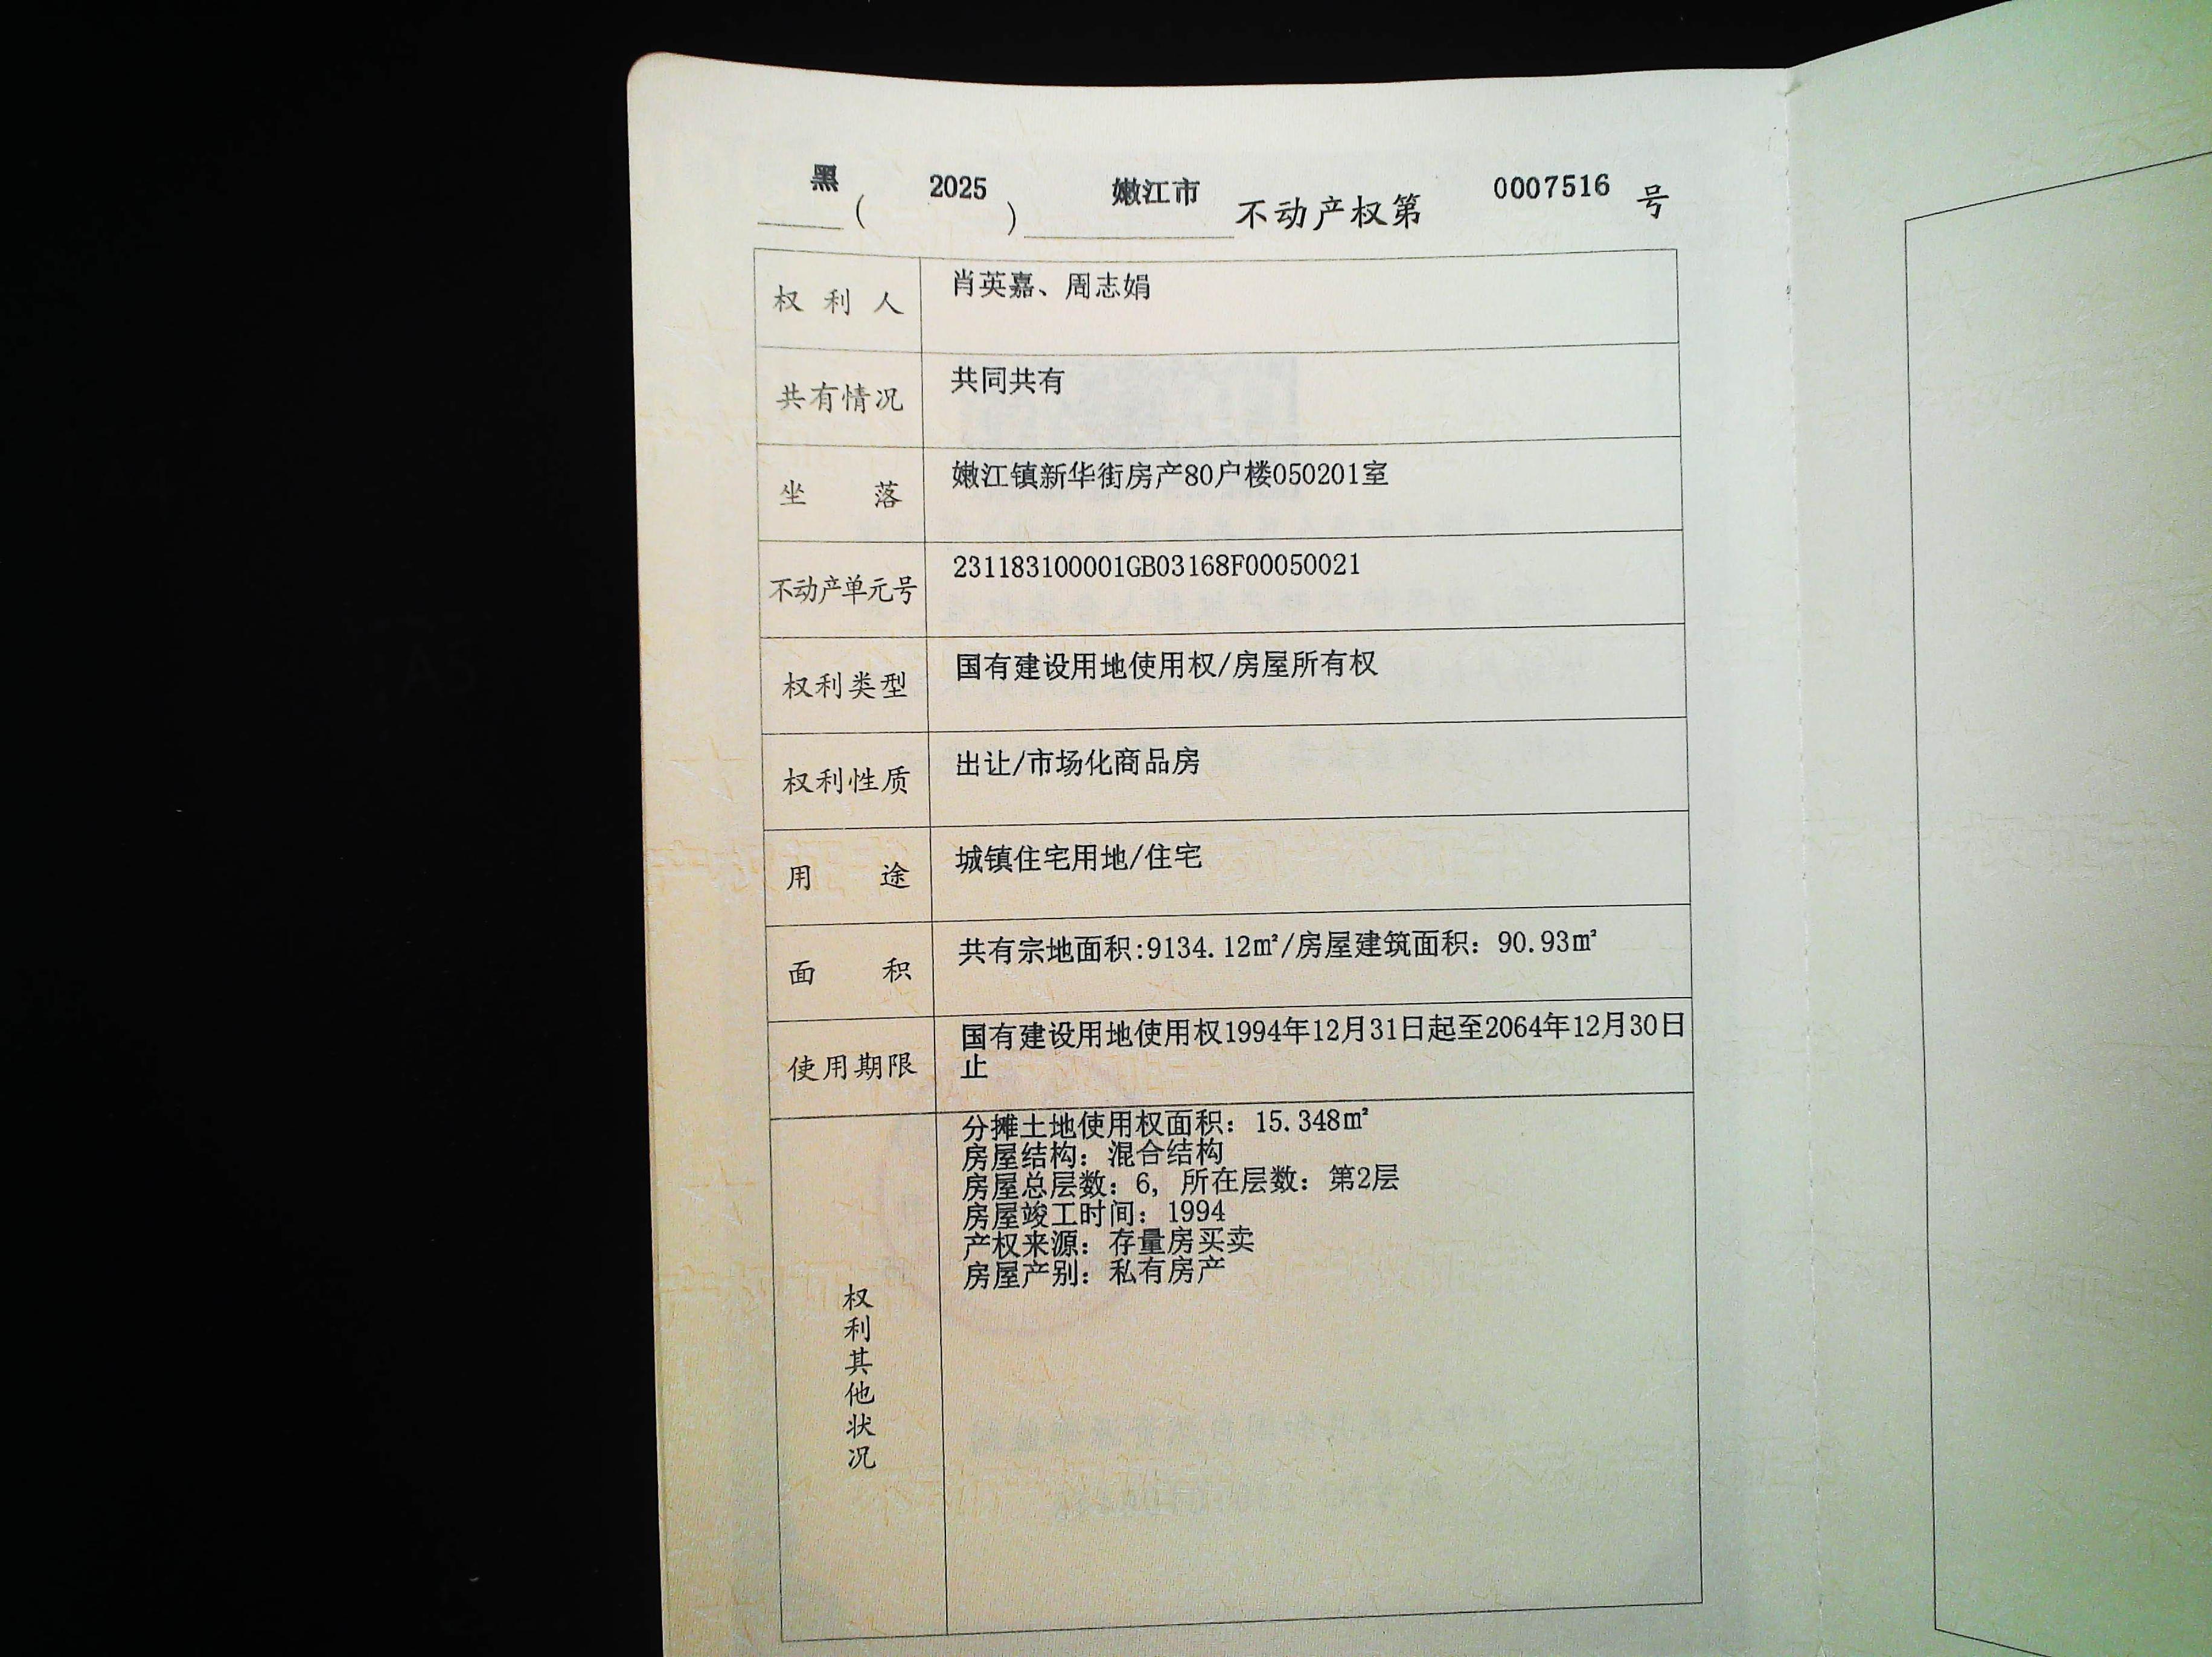 黑(2025)嫩江市不动产权第0007516号
权利人 肖英嘉、周志娟
共有情况 共同共有
坐落 嫩江镇新华街房产80户楼050201室
不动产单元号 231183100001GB03168F00050021
权利类型 国有建设用地使用权/房屋所有权
权利性质 出让/市场化商品房
用途 城镇住宅用地/住宅
面积 共有宗地面积:9134.12㎡/房屋建筑面积：90.93㎡
使用期限 国有建设用地使用权1994年12月31日起至2064年12月30日
止
权利其他状况
分摊土地使用权面积：15.348㎡
房屋结构：混合结构
房屋总层数：6，所在层数：第2层
房屋竣工时间：1994
产权来源：存量房买卖
房屋产别：私有房产